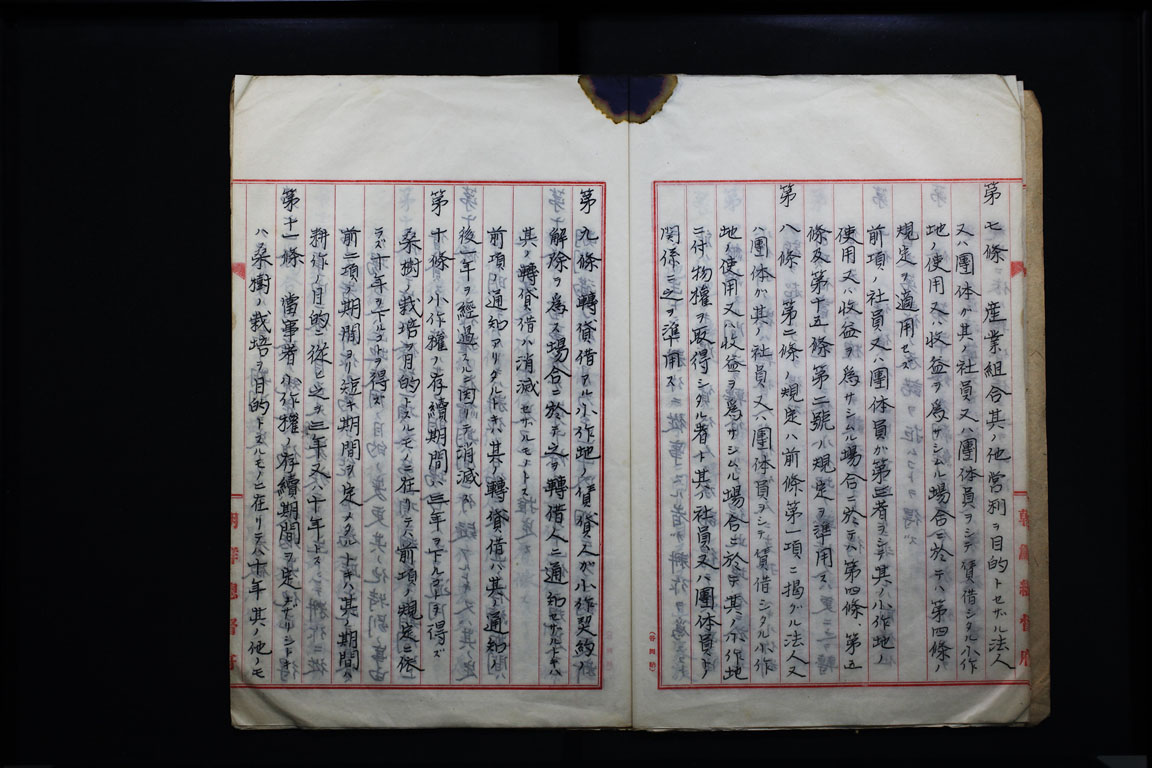 第七條 産業組合其ノ他営利ヲ目的トセザル法人
又ハ團体ガ其ノ社員又ハ團体員ヲシテ賃借シタル小作
地ノ使用又ハ收益ヲ爲サシムル場合ニ於テハ第四條ノ
規定ヲ適用セズ
前項ノ社員又ハ團体員ガ第三者ヲシテ其ノ小作地ノ
使用又ハ收益ヲ爲サシムル場合ニ於テハ第四條、第五
條及第十五條第二號ノ規定ヲ準用ス
第八條 第二條ノ規定ハ前條第一項ニ掲グル法人又
ハ團体ガ其ノ社員又ハ團体員ヲシテ賃借シタル小作
地ノ使用又ハ收益ヲ爲サシムル場合ニ於テ其ノ小作地
ニ付物權ヲ取得シタル者ト其ノ社員又ハ團体員トノ
関係ニ之ヲ準用ス
第九條 轉貸借アル小作地ノ賃貸人ガ小作契約ノ
解除ヲ爲ス場合ニ於テ之ヲ轉借人ニ通知セザルトキハ
其ノ轉貸借ハ消滅セザルモノトス
前項ノ通知アリタルトキハ其ノ轉貸借ハ其ノ通知
後一年ヲ經過スルニ因リテ消滅ス
第十條 小作權ノ存續期間ハ三年ヲ下ルコトヲ得ズ
桑樹ノ栽培ヲ目的トスルモノニ在リテハ前項ノ規定ニ依
ラズ十年ヲ下ルコトヲ得ズ
前二項ノ期間ヨリ短キ期間ヲ定メタルトキハ其ノ期間ハ
耕作ノ目的ニ從ヒ之ヲ三年又ハ十年トス
第十一條 當事者小作權ノ存續期間ヲ定メザリシトキ
ハ桑樹ノ栽培ヲ目的トスルモノニ在リテハ十年其ノ他ノモ
朝鮮總督府